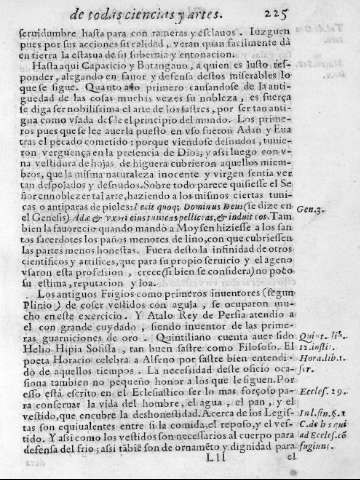 de todas ciencias y artes. 225
seruidumbre hasta para con rameras y esclauos. Iuzguen
pues por sus acciones su calidad, veran quan facilmente da
en tierra la estatua de su soberuia y entonacion.
Hasta aqui Capoccio y Botangono, a quien es justo res-
ponder, alegando en fauor y defensa destos miserables lo
que se sigue. Quanto a lo primero causandose de la anti-
guedad de las cosas muchas vezes su nobleza, es fuerça
se diga ser nobilissima el arte de los sastres, por ser tan anti-
gua como vsada desde el principio del mundo. Los prime-
ros pues que se lee auerla puesto en vso fueron Adan y Eua
tras el pecado cometido: porque viendose desnudos, tuuie-
ron verguença en la presencia de Dios, y assi luego con v-
na vestidura de hojas de higuera cubrieron aquellos miem-
bros, que la misma naturaleza inocente y virgen sentia ver
tan despojados y desnudos. Sobre todo parece quisiesse el Se
ñor ennoblezer tal arte, haziendo a los mismos ciertas tuni-
cas o antiparas de pieles: Fecit quoq; Dominus Deus (se dize en
el Genesis) Adæ & vxori eius tunicas pelliceas, & induit eos. Tam
Gen.3.
bien la fauorecio quando mandò a Moysen hiziesse a los san
tos sacerdotes los paños menores de lino, con que cubriessen
las partes menos honestas. Fuera desto la infinidad de otros
cientificos y artifices, que para su propio seruicio y el ageno
vsaron esta profession, crece (si bien se considera) no poco
su estima, reputacion y loa.
Los antiguos Frigios como primeros inuentores (segun
Plinio) de coser vestidos con aguja, se ocuparon mu-
cho en este exercicio. Y Atalo Rey de Persia atendio a
el con grande cuydado, siendo inuentor de las prime-
ras guarniciones de oro. Quintiliano cuenta auer sido
Quint. lib.
Helio Hipia Sofista, tan buen sastre como Filosofo. El
12.insti.
poeta Horacio celebra a Alfeno por sastre bien entendi-
Hora.lib.1.
do de aquellos tiempos. La necessidad deste oficio oca-
ser.
siona tambien no pequeño honor a los que le siguen. Por
esso està escrito en el Eclesiastico ser lo mas forçoso pa-
Eccles. 29.
ra conseruar la vida del hombre, el agua, el pan, y el
vestido, que encubre la deshonestidad. Acerca de los Legis-
tas son equiualentes entre si la comida, el reposo, y el ves-
tido. Y assi como los vestidos son necessarios al cuerpo para
ad Eccles.co
defensa del frio; assi tãbiẽ son de ornamẽto y dignidad para
fugiun:
Lll el